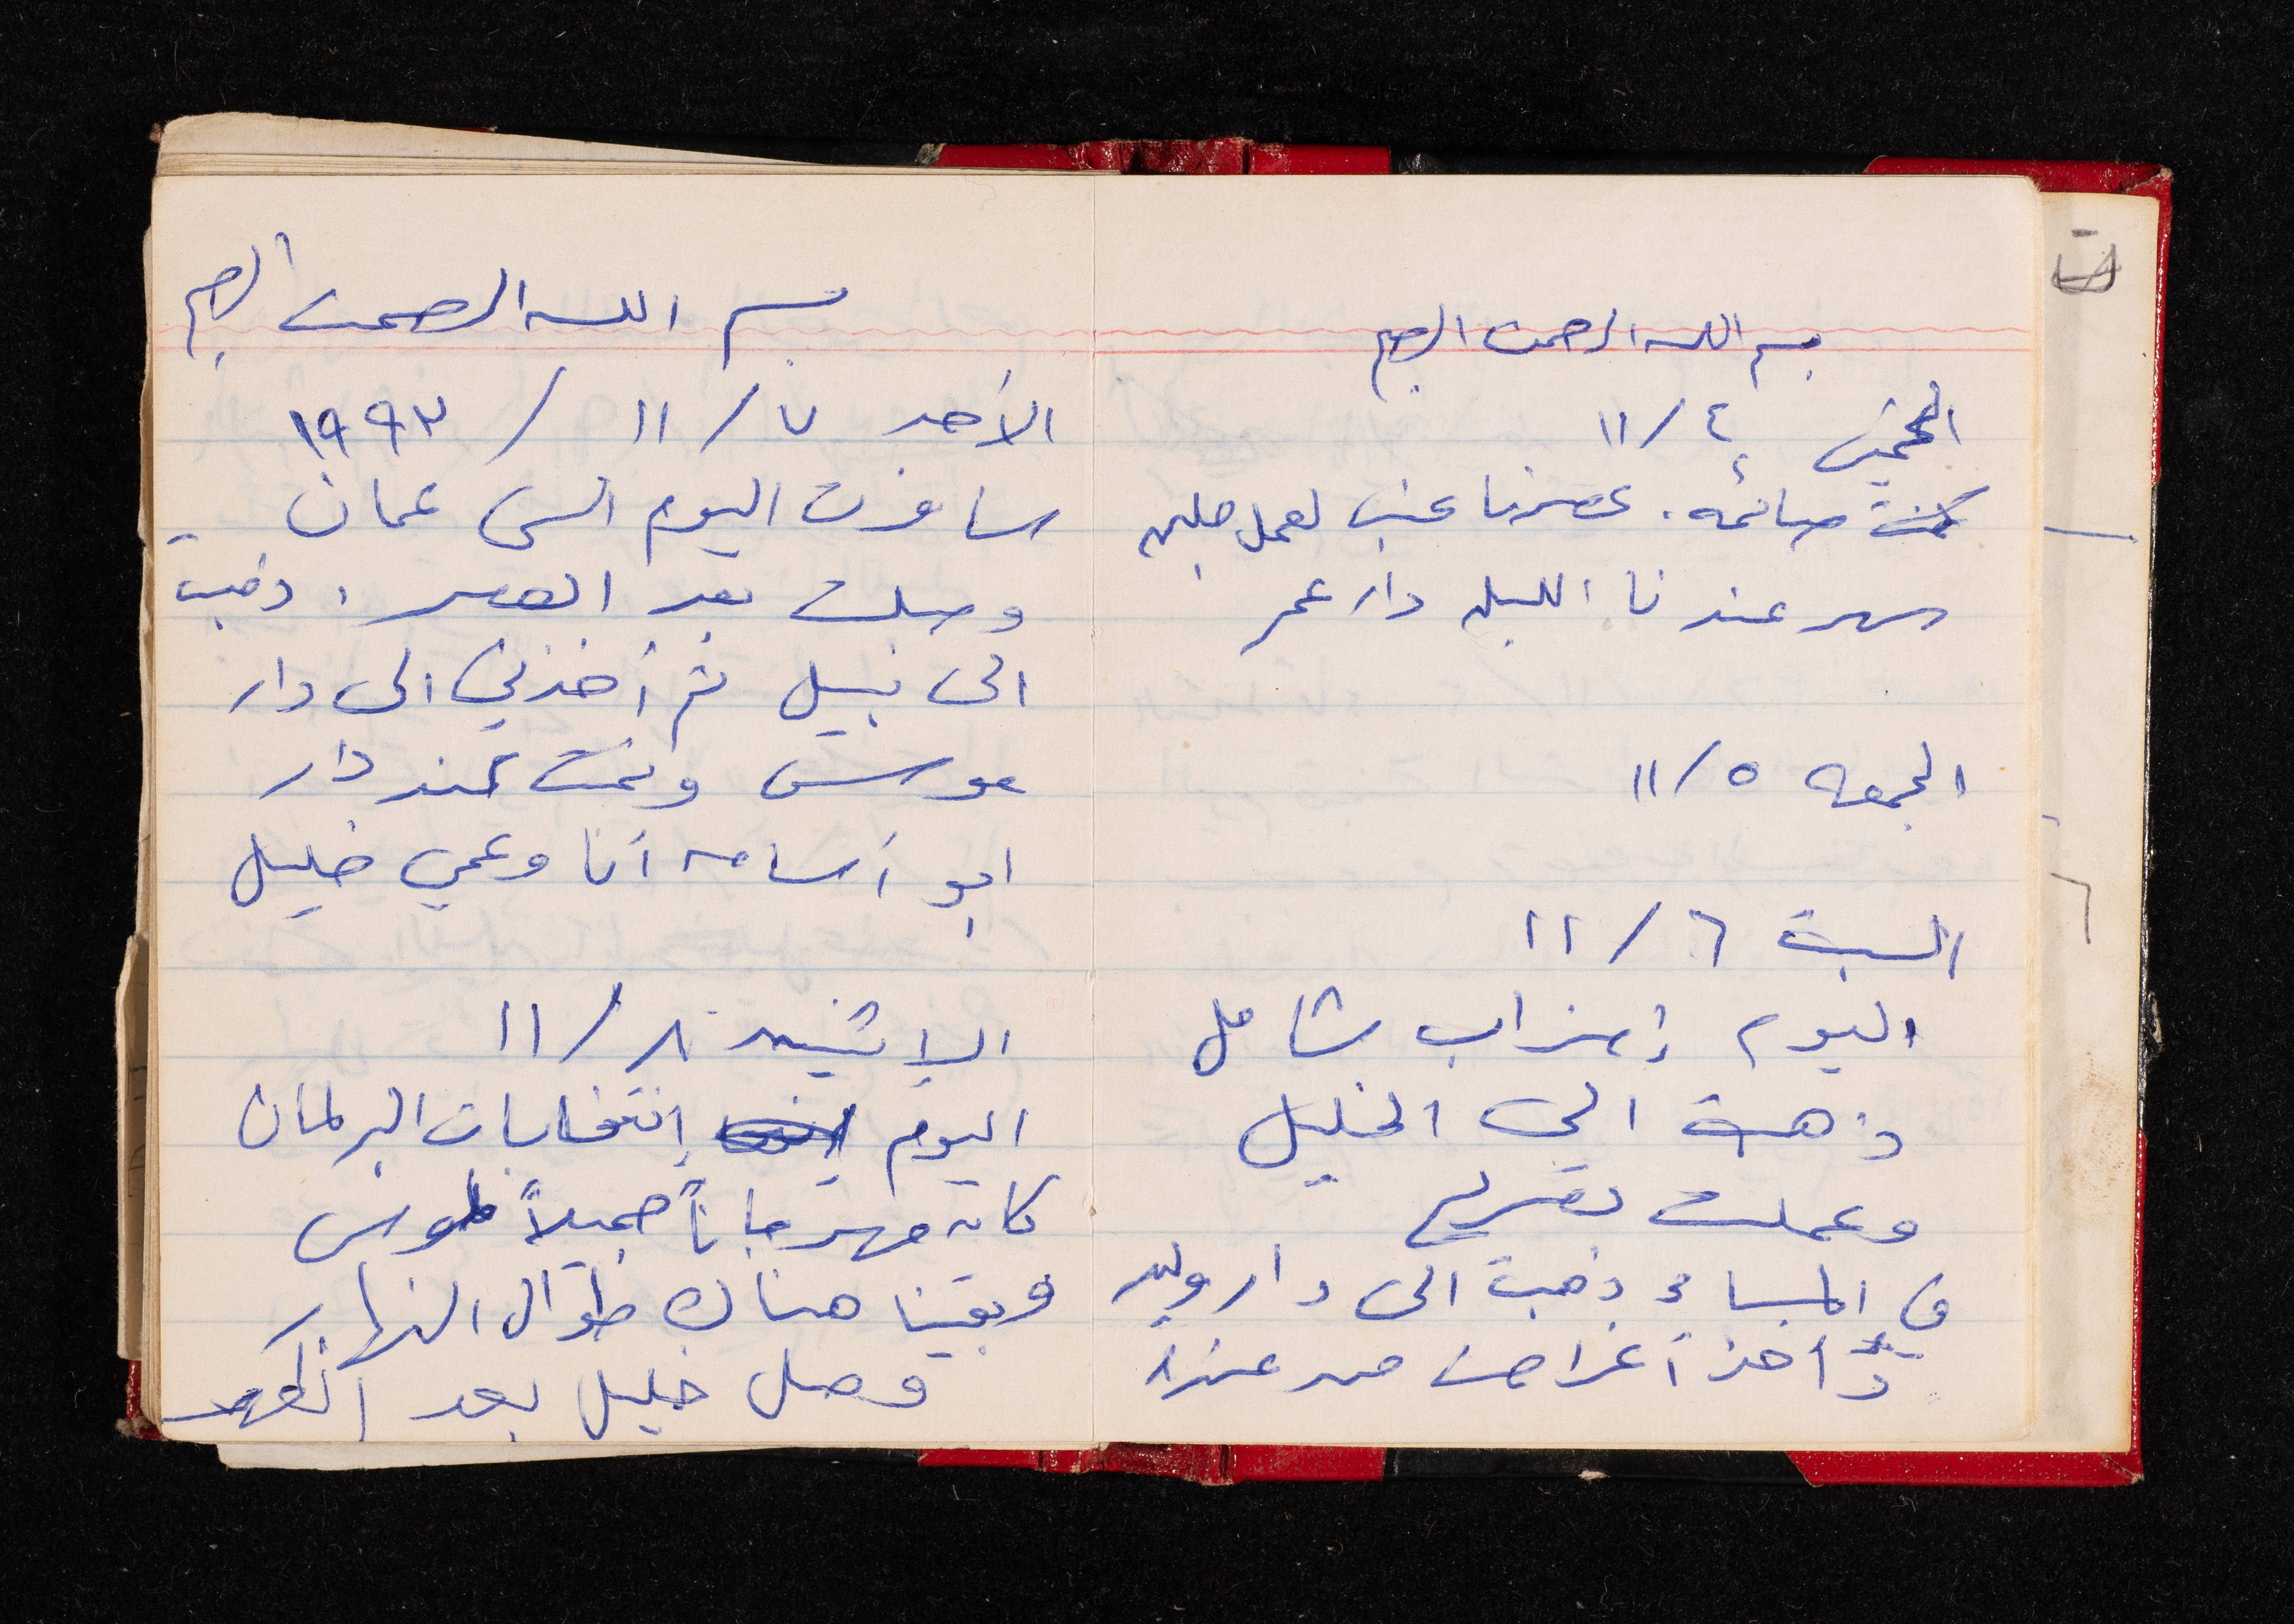 بسم الله الرحمن الرحيم
الخميس ٤/١١
كنت صائمه. عصرنا عنب لعمل ملبن
سهر عندنا الليله دار عمر
الجمعه ٥/١١
السبت ٦/١١
اليوم إضراب شامل
ذهبت الى الخليل
وعملت تصريح
في المساء ذهبت الى دار وليد
وأخذ أغراض من عندنا
بسم الله الرحمن الرحيم
الأحد ٧/١١/١٩٩٣
سافرت اليوم الى عمان
وصلت بعد العصر. ذهبت
الى نبيل ثم أخذني الى دار
موسى ونمت عند دار
ابو أسامه أنا وعمي خليل
الإثنين ٨/١١
اليوم إنتخابات البرلمان
كان مهرجاناً جميلاً لموسى
وبقينا هناك طوال النهار
وصل خليل بعد الظهر